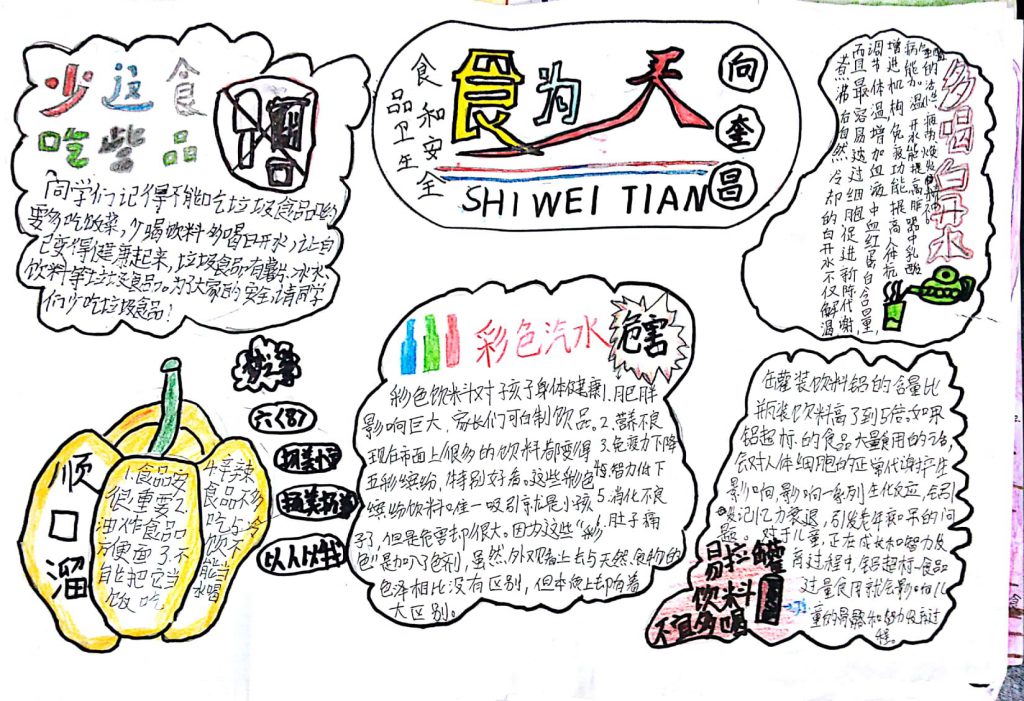 食品卫生
和安全
食为天
向奎昌
SHIWEI TIAN
少这食
吃些品
同学们记得不能吃垃圾食品哟
要多吃饭菜,少喝饮料多喝白开水,让自
已变得健康起来,垃圾食品有薯片、冰水
饮料等垃圾食品。为了大家的安全,请同学
们少吃垃圾食品!
多喝白开水
煮沸后自然冷却的白开水不仅解渴
而且最容易透过细胞促进新陈代谢,
调节体温,增加血液中血红蛋白含量,
增进机构免疫功能,提高人体抗
病能力。温开水能提高脏器中乳酸
彩色汽水
危害
彩色饮料对于孩子身体健康
影响巨大,家长们可自制饮品。
现在市面上很多的饮料都变得
五彩缤纷,特别好看。这些彩色
缤纷饮料唯一吸引就是小孩
子了,但是危害却很大。因为这些“彩
色”是加入了色剂,虽然,外观看上去与天然食物的
色泽相比没有区别,但本质上却有着
大区别。
1.肥胖
2.营养不良
3.免疫力下降
4.智力低下
5.消化不良
6.肚子痛
顺口溜
1.食品安
很重要2.
油炸食品
方便面了不
能把它当
饭吃
4.辛辣
食品不多
吃与冷
饮不
能当
水喝
在罐装饮料铝的含量比
瓶装饮料高了3到5倍。如果
铝超标的食品大量食用的话,
会对人体细胞的正常代谢产生
影响,影响一系列生化反应,会引
起记忆力衰退,引发老年痴呆的问
题。对于儿童,正在成长和智力发
育过程中,铝超标食品
过量食用就会影响儿
童的骨骼和智力发育过
程。
易拉罐
饮料
不宜多喝